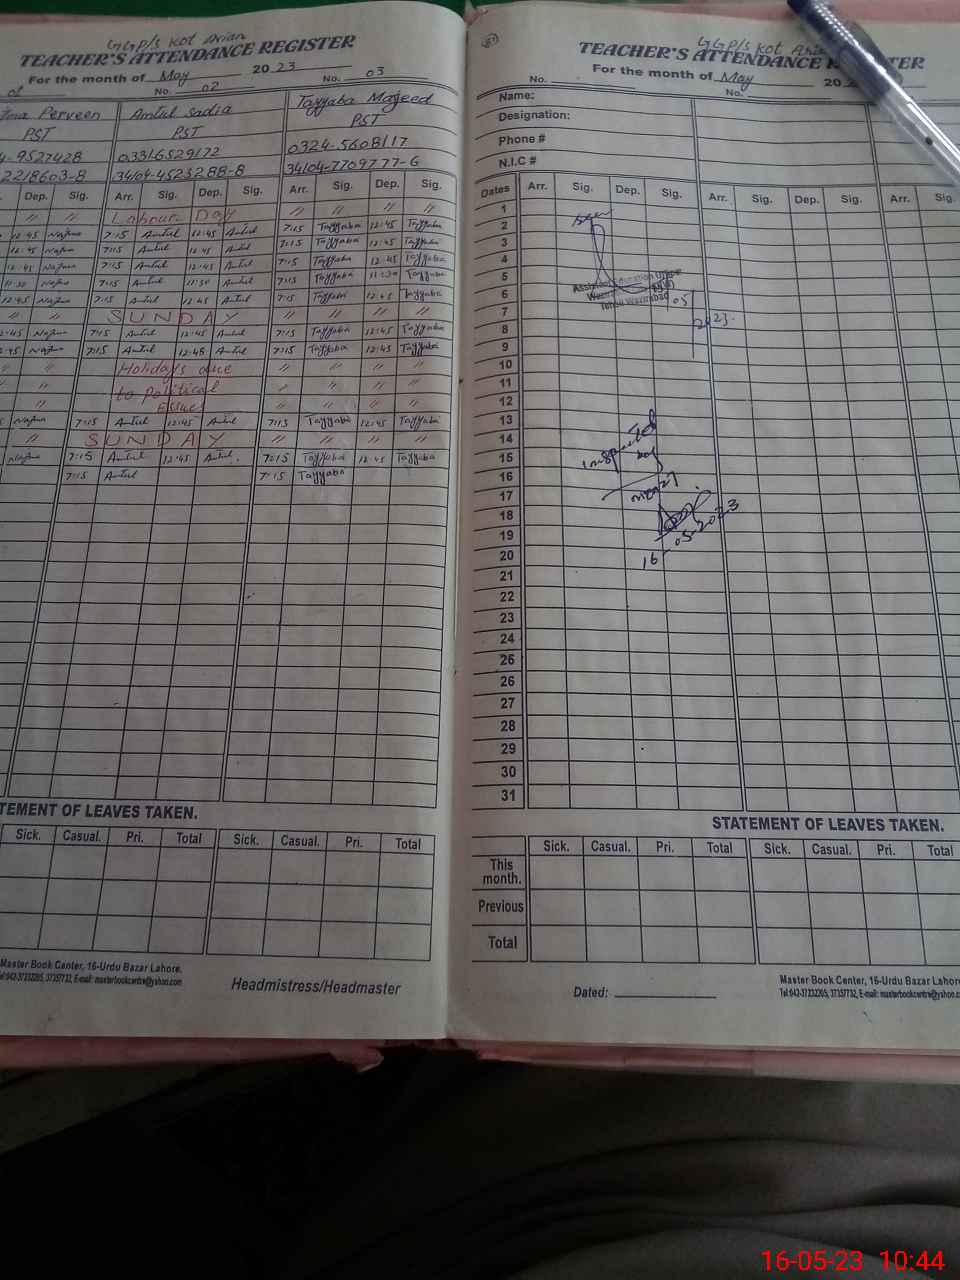 GGP/s Kot Arian
TEACHER'S ATTENDANCE REGISTER
For the month of May 2023
No. 02 No. 03
Perveen Amtul Sadia Tayyaba Majeed
PST PST PST
9527428 03316529172 0324-5608117
2218603-8 34104-4523288-8 34104-7709777-6
Dep. Sig. Arr. Sig. Dep. Sig. Arr. Sig. Dep. Sig.
〃 〃 Labour Day 〃 〃 〃 〃
12:45 Najma 7:15 Amtul 12:45 Amtul 7:15 Tayyaba 12:45 Tayyaba
12:45 Najma 7:15 Amtul 12:45 Amtul 7:15 Tayyaba 12:45 Tayyaba
12:45 Najma 7:15 Amtul 12:45 Amtul 7:15 Tayyaba 12:45 Tayyaba
11:30 Najma 7:15 Amtul 11:30 Amtul 7:15 Tayyaba 11:30 Tayyaba
12:45 Najma 7:15 Amtul 12:45 Amtul 7:15 Tayyaba 12:45 Tayyaba
〃 〃 SUNDAY 〃 〃 〃 〃
2:45 Najma 7:15 Amtul 12:45 Amtul 7:15 Tayyaba 12:45 Tayyaba
2:45 Najma 7:15 Amtul 12:45 Amtul 7:15 Tayyaba 12:45 Tayyaba
〃 〃 Holidays due 〃 〃 〃 〃
〃 〃 to Political 〃 〃 〃 〃
〃 Essues 〃 〃 〃 〃
Najma 7:15 Amtul 12:45 Amtul 7:15 Tayyaba 12:45 Tayyaba
〃 SUNDAY 〃 〃 〃 〃
Najma 7:15 Amtul 12:45 Amtul. 7:15 Tayyaba 12:45 Tayyaba
7:15 Amtul 7:15 Tayyaba
TEMENT OF LEAVES TAKEN.
Sick. Casual. Pri. Total Sick. Casual. Pri. Total
Master Book Center, 16-Urdu Bazar Lahore.
Tel:042-37232205, 37357732, E-mail: masterbookcentre@yahoo.com
Headmistress/Headmaster
GGP/s Kot Arian
TEACHER'S ATTENDANCE REGISTER
For the month of May 20
No. No.
Name:
Designation:
Phone #
N.I.C #
Dates Arr. Sig. Dep. Sig. Arr. Sig. Dep. Sig. Arr. Sig.
1
2
3
4
5
Education Officer
6
Tehsil Wazirabad
05
7
2023.
8
9
10
11
12
13
14
inspected
15
16
17
18
19
16-05-2023
20
21
22
23
24
25
26
27
28
29
30
31
STATEMENT OF LEAVES TAKEN.
Sick. Casual. Pri. Total Sick. Casual. Pri. Total
This month.
Previous
Total
Master Book Center, 16-Urdu Bazar Lahore
Tel:042-37232205, 37357732, E-mail: masterbookcentre@yahoo.co
Dated:
16-05-23 10:44